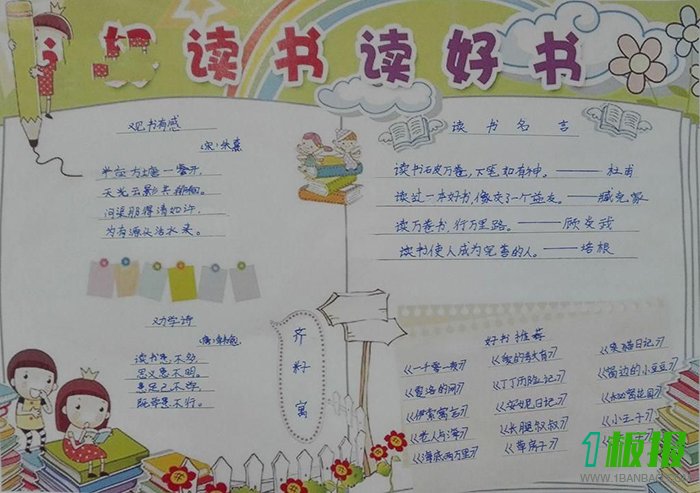 好读书读好书
观书有感
宋:朱熹
半亩方塘一鉴开,
天光云影共徘徊。
问渠那得清如许,
为有源头活水来。
劝学诗
读书患不多,
思义患不明。
患足己不学,
既学患不行。
齐
籽
寓
读书名言
读书破万卷,下笔如有神。——杜甫
读过一本好书,像交了一个益友。——臧克家
读万卷书,行万里路。——顾炎武
读书使人成为完善的人。——培根
好书推荐
《一千零一夜》
《爱的教育》
《笑猫日记》
《夏洛的网》
《丁丁历险记》
《窗边的小豆豆》
《伊索寓言》
《安妮日记》
《秘密花园》
《老人与海》
《长腿叔叔》
《小王子》
《海底两万里》
《草房子》
1板报
WWW.1BANBAO.COM